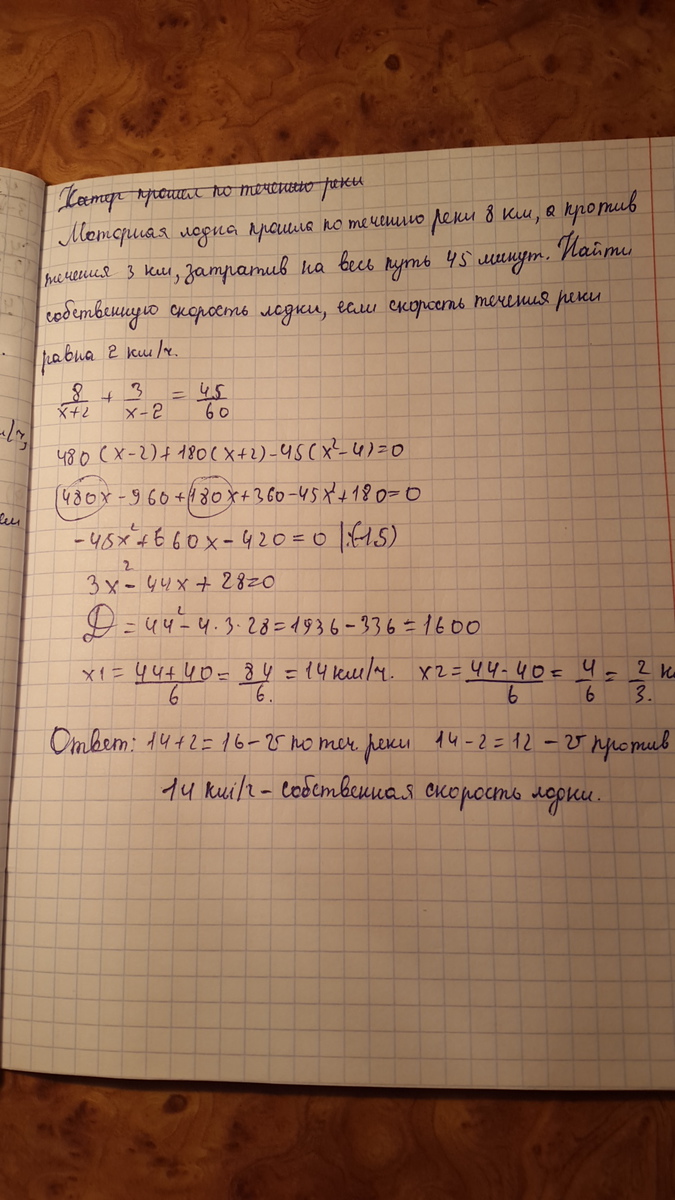 Катер прошел по течению реки
Моторная лодка прошла по течению реки 8 км, а против
течения 3 км, затратив на весь путь 45 минут. Найти
собственную скорость лодки, если скорость течения реки
равна 2 км/ч.
8/(x+2) + 3/(x-2) = 45/60
480(x-2)+180(x+2)-45(x²-4)=0
480x-960+180x+360-45x²+180=0
-45x²+660x-420=0 |:(-15)
3x²-44x+28=0
D=44²-4·3·28=1936-336=1600
x1=(44+40)/6=84/6.=14км/ч. x2=(44-40)/6=4/6=2/3.
Ответ: 14+2=16-v по теч. реки 14-2=12-v против
14 км/ч-собственная скорость лодки.